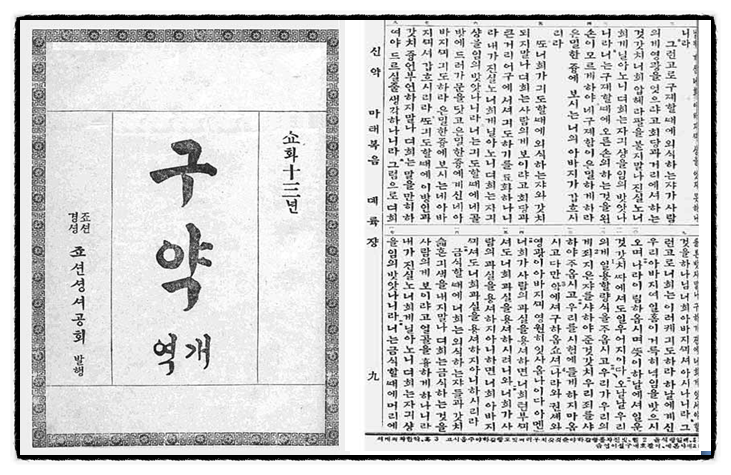 쇼화十三년
구약
개역
죠션
경셩
죠션셩셔공회 발행
신약 마태복음 뎨륙쟝 九
니라
그런고로구제할때에외식하는쟈가사람
의게영광을엇으랴고회당과거리에서하는
것갓치너희압헤라팔을불지말나진실노너
희게닐아노니뎌희는자긔샹을임의밧앗나
니라너는구제할때에오른손의하는것을왼
손이모르게하야네구제함이은밀하게하라
은밀한중에보시는너의아바지가갑흐시
리라
또너희가긔도할때에외식하는쟈와갓치
되지말나뎌희는사람의게보이랴고회당과
큰거리어구에셔셔긔도하기를됴화하나니
라내가진실노너희게닐아노니뎌희는자긔
샹을임의밧앗나니라너는긔도할때에네골
방에드러가문을닷고은밀한중에계신네아
바지께긔도하라은밀한중에보시는네아바
지께서갑흐시리라또긔도할때에이방인과
갓치즁언부언하지말나뎌희는말을만히하
여야드르실줄생각하나니라그럼으로뎌희
것을하나님너희아바지께셔아시나니라그
런고로너희는이러케긔도하라하날에계신
우리아바지여일홈이거룩히넉임을밧으시
오며나라이림하옵시며뜻이하날에셔일운
것갓치따에셔도일우어지이다오날날우리
의게일용할량식을주옵시고우리가우리의
게죄지은쟈를샤하야준것갓치우리죄를샤
하야주옵시고우리를시험에들게하지마옵
시고다만악에셔구하옵쇼셔(나라와권셰와
영광이아바지께영원히잇사옵나이다아멘)
너희가사람의과실을용셔하면너희텬부께
셔도너희과실을용셔하시려니와너희가사
람의과실을용셔하지아니하면너희아바지
께셔도너희과실을용셔하지아니하시리라
금식할때에너희는외식하는쟈들과갓치
슯흔긔색을내지말나뎌희는금식하는것을
사람의게보이랴고얼골을흉하게하나니라
내가진실노너희게닐아노니뎌희는자긔샹
을임의밧앗나니라너는금식할때에머리에